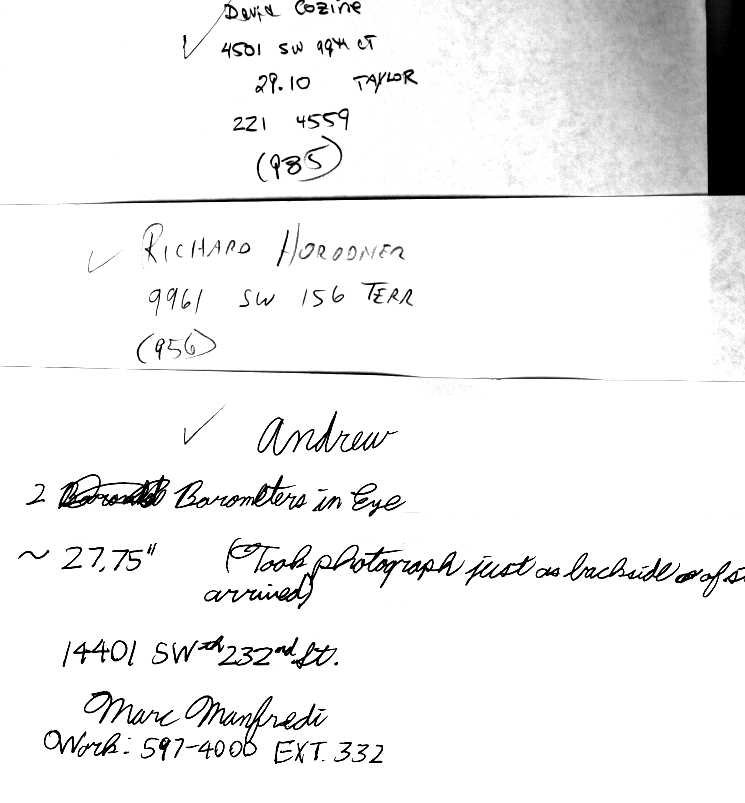 David Cozine
✓ 4501 SW 99th CT
29.10 TAYLOR
221 4559
(985)
✓ RICHARD HORODNER
9961 SW 156 TERR
(956)
✓ Andrew
2 Barometers in Eye
~ 27.75" (Took photograph just as backside of
arrived)
14401 SW 232nd St.
Marc Manfredi
Work: 597-4000 EXT. 332